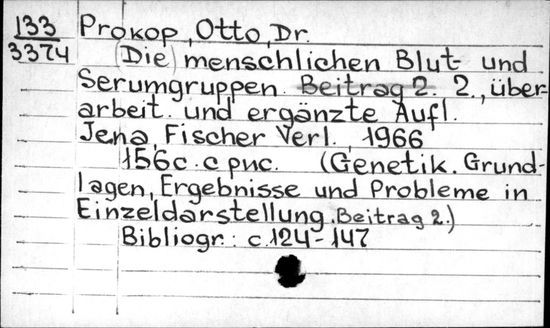 133
3374
Prokop, Otto, Dr.
(Die) menschlichen Blut- und
Serumgruppen. Beitrag 2. 2., über-
arbeit. und ergänzte Aufl.
Jena, Fischer Verl., 1966
156с. с рис. (Genetik. Grund-
lagen, Ergebnisse und Probleme in
Einzeldarstellung. Beitrag 2.)
Bibliogr.: с. 124-147